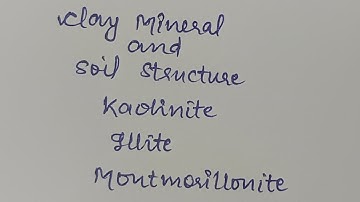 Clay Mineral
and
Soil Structure
Kaolinite
Illite
Montmorillonite